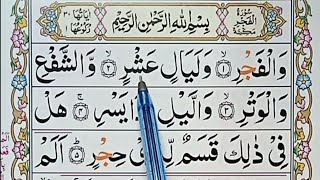 سُوْرَةُ الْفَجْرِ مَكِّيَّةٌ
بِسْمِ اللّٰهِ الرَّحْمٰنِ الرَّحِيْمِ
اٰيَاتُهَا ٣٠ رُكُوْعُهَا ١
وَالْفَجْرِ ۙ﴿۱﴾ وَلَيَالٍ عَشْرٍ ۙ﴿۲﴾ وَّالشَّفْعِ
وَالْوَتْرِ ۙ﴿۳﴾ وَالَّيْلِ اِذَا يَسْرِ ۚ﴿۴﴾ هَلْ
فِيْ ذٰلِكَ قَسَمٌ لِّذِيْ حِجْرٍ ؕ﴿۵﴾ اَلَمْ